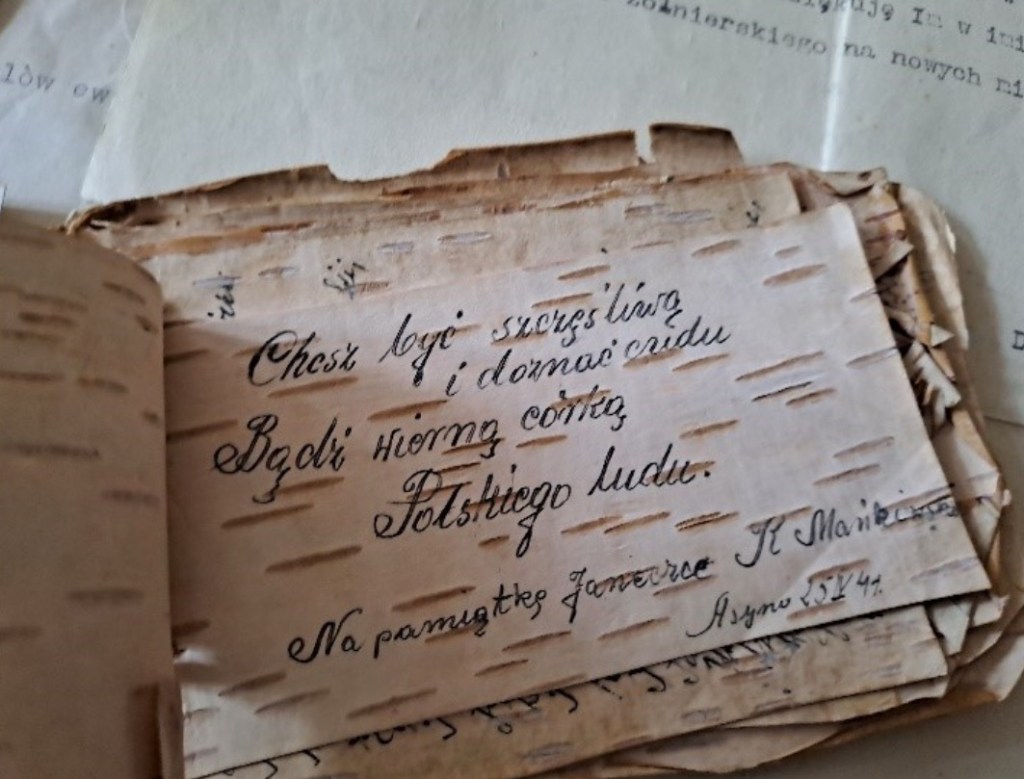 Im w imi
żołnierskiego na nowych mi
lów ow
Chcsz być szczęśliwą
i doznać cudu
Bądź wierną córką
Polskiego ludu.
Na pamiątkę Janeczce K
Asyno 25 V 41.